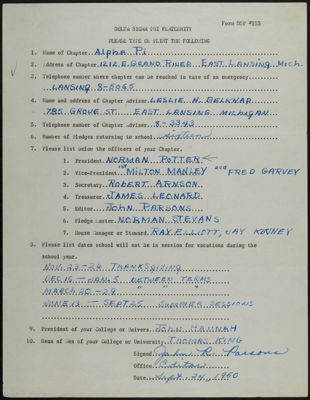 Form DSP #153
DELTA SIGMA PHI FRATERNITY
PLEASE TYPE OR PRINT THE FOLLOWING
1. Name of Chapter Alpha Pi
2. Address of Chapter 1212 E. GRAND RIVER EAST LANSING, Mich.
3. Telephone number where chapter can be reached in case of an emergency
LANSING 8-5065
4. Name and address of Chapter Advisor LESLIE H. BELKNAP
785 GROVE ST. EAST LANSING, MICHIGAN
5. Telephone number of Chapter Advisor 8-3343
6. Number of Pledges returning to school sixteen
7. Please list below the officers of your Chapter.
1. President NORMAN POTTER
2. Vice-President 1st MILTON MANLEY 2nd FRED GARVEY
3. Secretary ROBERT ARNSON
4. Treasurer JAMES LEONARD
5. Editor JOHN PARSONS
6. Pledge Master NORMAN STEVANS
7. House Manager or Steward RAY ELLIOTT, JAY KENNEY
8. Please list dates school will not be in session for vacations during the
school year.
NOV. 23-26 THANKSGIVING
DEC 15 - JAN. 5 BETWEEN TERMS
MARCH 20-29 " "
JUNE 13 - SEPT 25 SUMMER SESSIONS
9. President of your College or Univers. JOHN HANNAH
10. Dean of Men of your College or University THOMAS KING
Signed John R. Parsons
Office Editor
Date Sept. 24, 1950